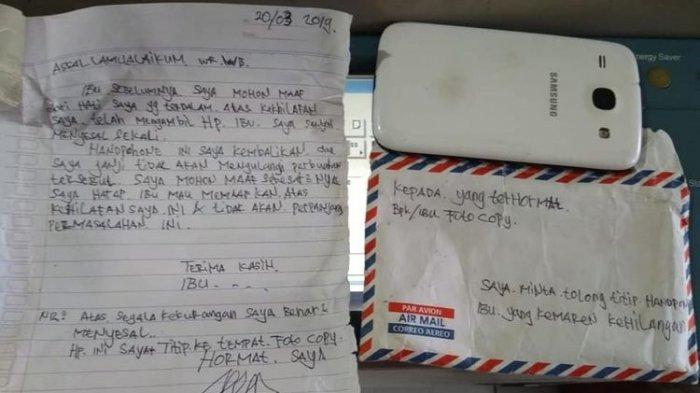 20/03 2019.
ASSALLAMUALAIKUM WR. WB.
IBU SEBELUMNYA SAYA MOHON MAAF
dari HATI SAYA yg TERDALAM. ATAS KEKHILAFAN
SAYA. telah MENGAMBIL HP. IBU. SAYA
MENYESAL SEKALI.
HANDPHONE INI SAYA KEMBALIKAN. dan
SAYA JANJI TIDAK AKAN MENGULANGI perbuatan
tersebut. SAYA MOHON MAAF
SAYA HARAP. IBU MAU MEMAAFKAN. ATAS
KEHILAFAN SAYA. INI & tidak AKAN. PERPANJANG
PERMASALAHAN INI.
TERIMA KASIH.
IBU. . . .
NB: ATAS. SEGALA KEKURANGAN SAYA BENAR2
MENYESAL..
HP. INI SAYA TITIP KE TEMPAT. FOTO COPY.
HORMAT. SAYA
SAMSUNG
Energy Saver
KEPADA. yang terHORMAT.
Bpk/IBU FOTO COPY.
SAYA. MINTA. tolong titip HANDPON
IBU. yang KEMAREN KEHILANGAN
PAR AVION
AIR MAIL
CORREO AEREO